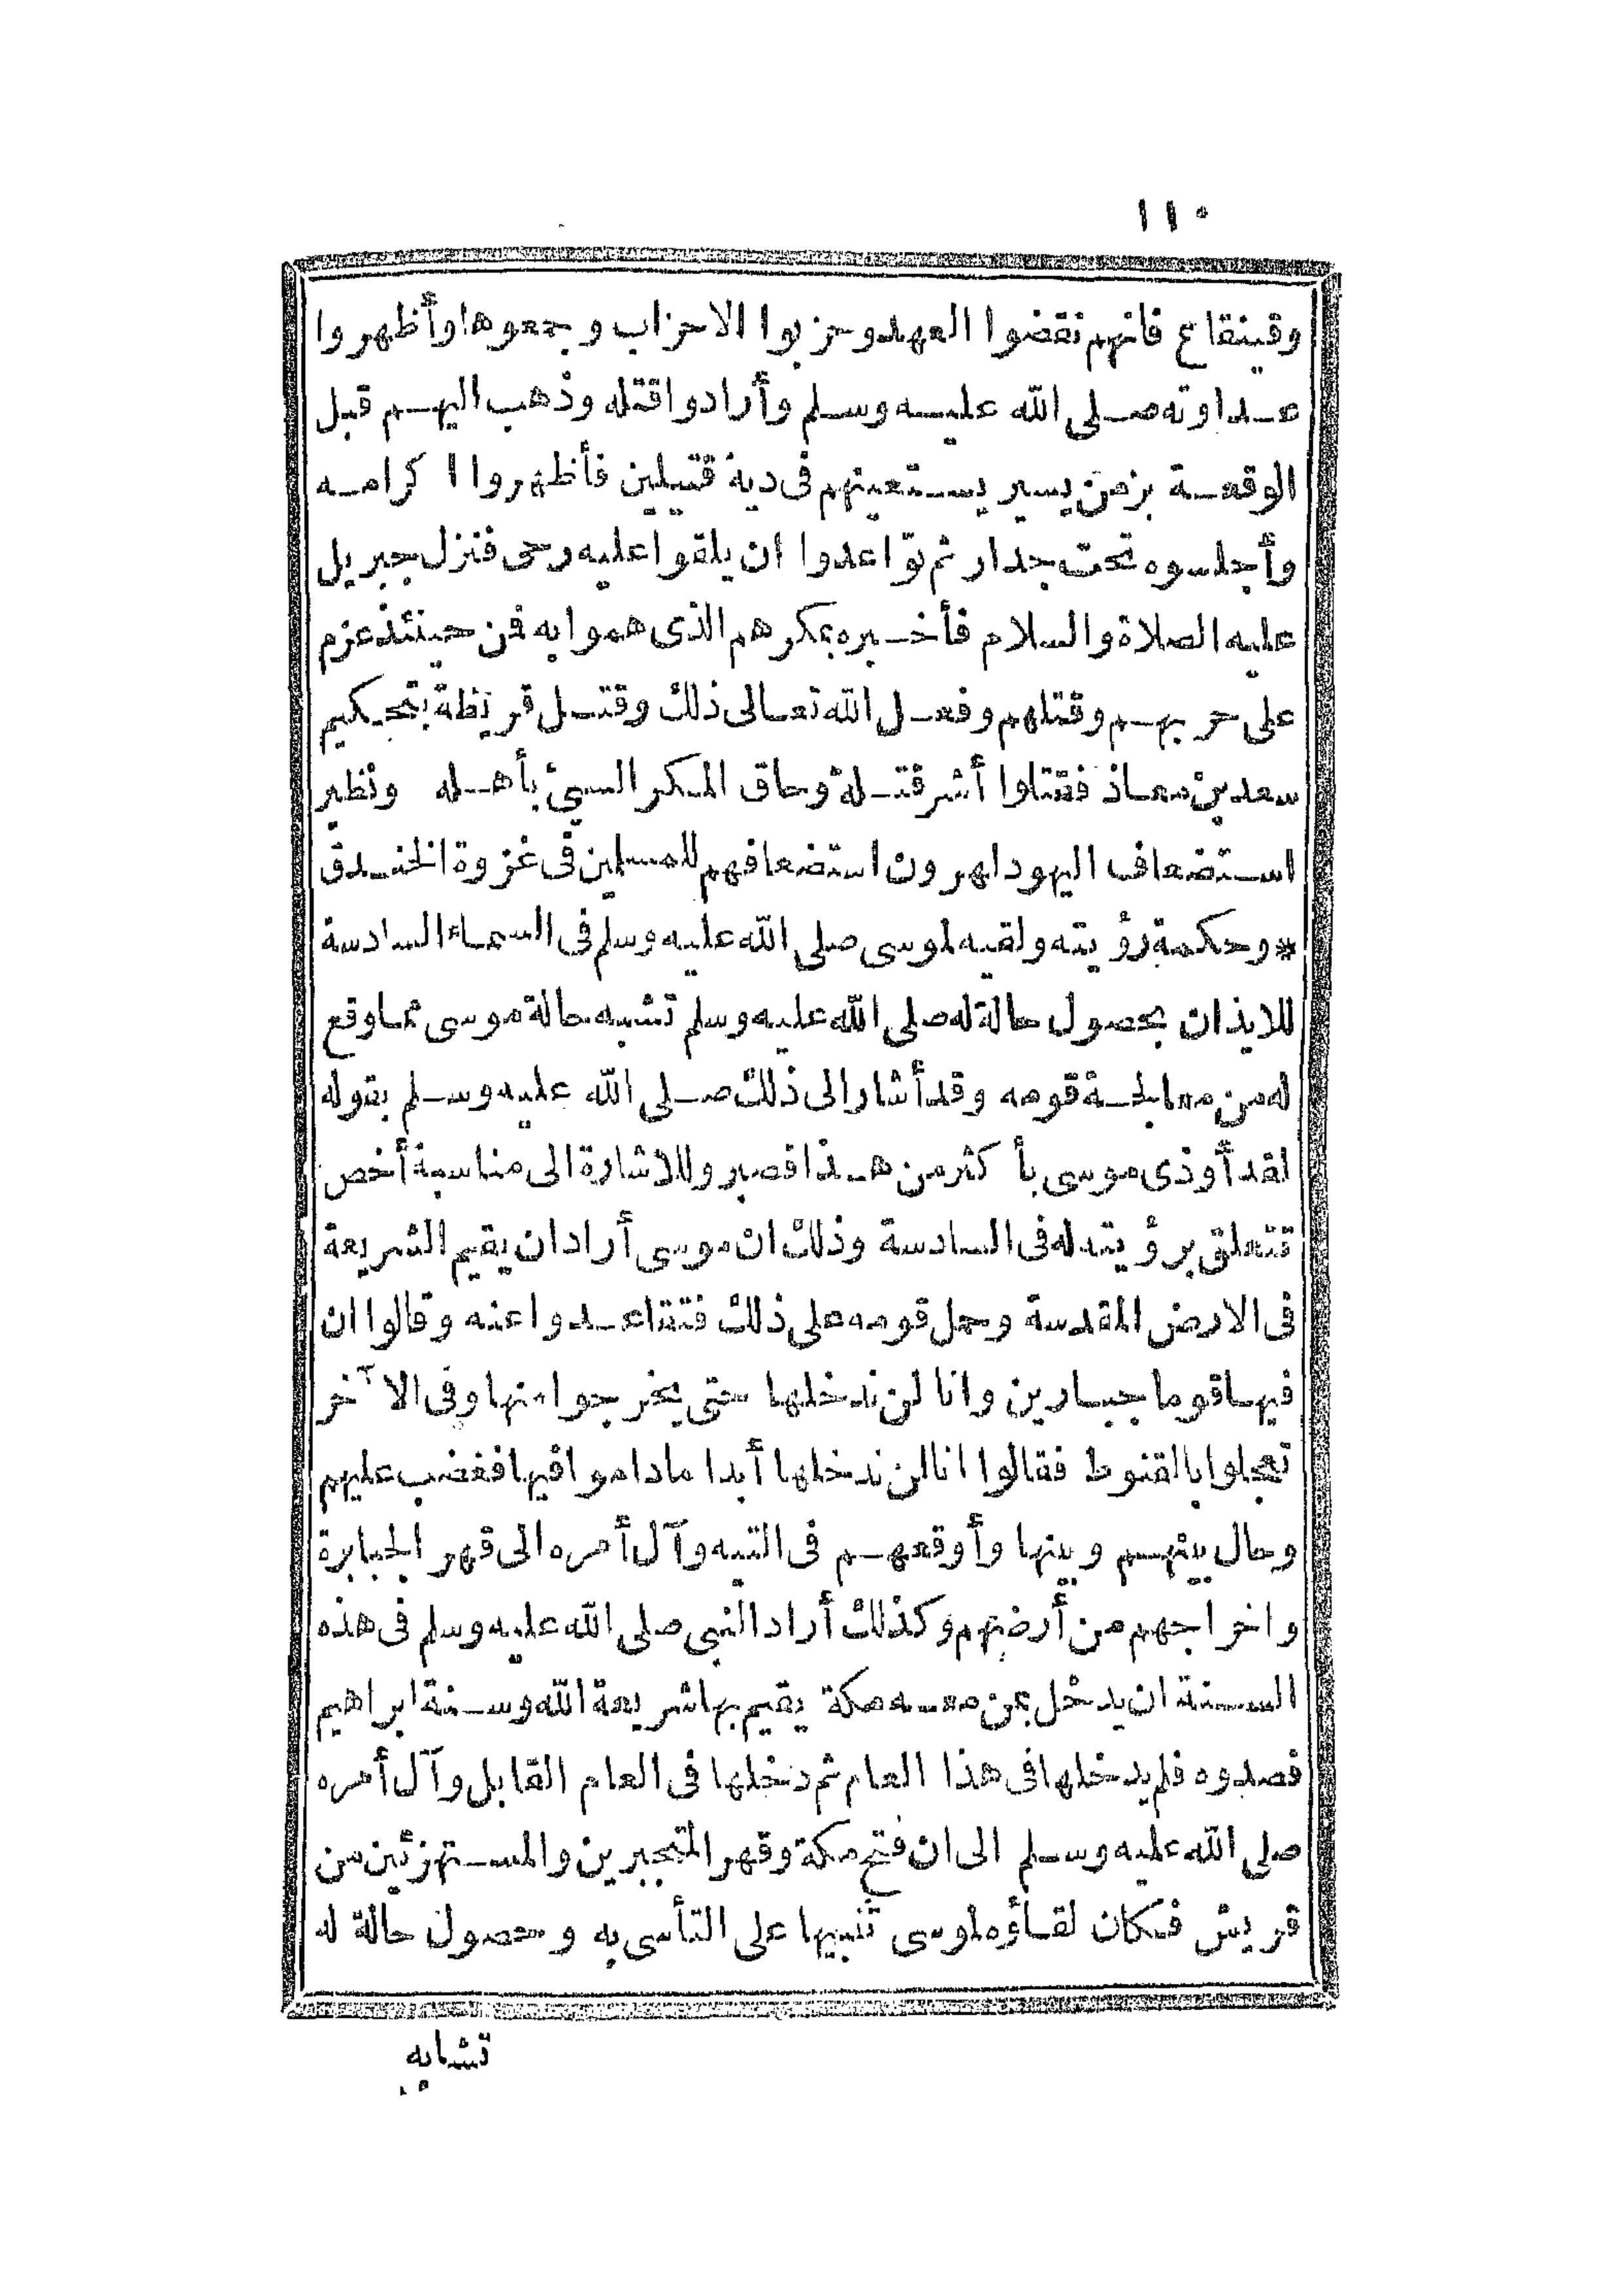 ١١٠
وقينقاع فانهم نقضوا العهد وحزبوا الاحزاب وجمعوها وأظهروا
عداوته صلى الله عليه وسلم وأرادوا قتله وذهب اليهم قبل
الوقعة بزمن يسير يستعينهم فى دية قتيلين فأظهروا اكرامه
وأجلسوه تحت جدار ثم تواعدوا ان يلقوا عليه رحى فنزل جبريل
عليه الصلاة والسلام فأخبره بمكرهم الذى هموا به فمن حينئذ عزم
على حربهم وقتلهم وفعل الله تعالى ذلك وقتل قريظة بتحكيم
سعد بن معاذ فقتلوا أشر قتلة وحاق المكر السيئ بأهله ونظير
استضعاف اليهود لهرون استضعافهم للمسلمين فى غزوة الخندق
* وحكمة رؤيته ولقيه لموسى صلى الله عليه وسلم فى السماء السادسة
للايذان بحصول حالة له صلى الله عليه وسلم تشبه حالة موسى مما وقع
له من معالجة قومه وقد أشار الى ذلك صلى الله عليه وسلم بقوله
لقد أوذى موسى بأكثر من هذا فصبر وللاشارة الى مناسبة أخص
تتعلق برؤيته له فى السادسة وذلك ان موسى أراد ان يقيم الشريعة
فى الارض المقدسة وحمل قومه على ذلك فتقاعدوا عنه وقالوا ان
فيها قوما جبارين وانا لن ندخلها حتى يخرجوا منها وفى الآخر
تعجلوا بالقنوط فقالوا انا لن ندخلها أبدا ما داموا فيها فغضب عليهم
وحال بينهم وبينها وأوقعهم فى التيه وآل أمره الى قهر الجبابرة
واخراجهم من أرضهم وكذلك أراد النبى صلى الله عليه وسلم فى هذه
السنة ان يدخل بمن معه مكة يقيم بها شريعة الله وسنة ابراهيم
فصدوه فلم يدخلها فى هذا العام ثم دخلها فى العام القابل وآل أمره
صلى الله عليه وسلم الى ان فتح مكة وقهر المتجبرين والمستهزئين من
قريش فكان لقاؤه لموسى تنبيها على التأسى به وحصول حالة له
تشابه